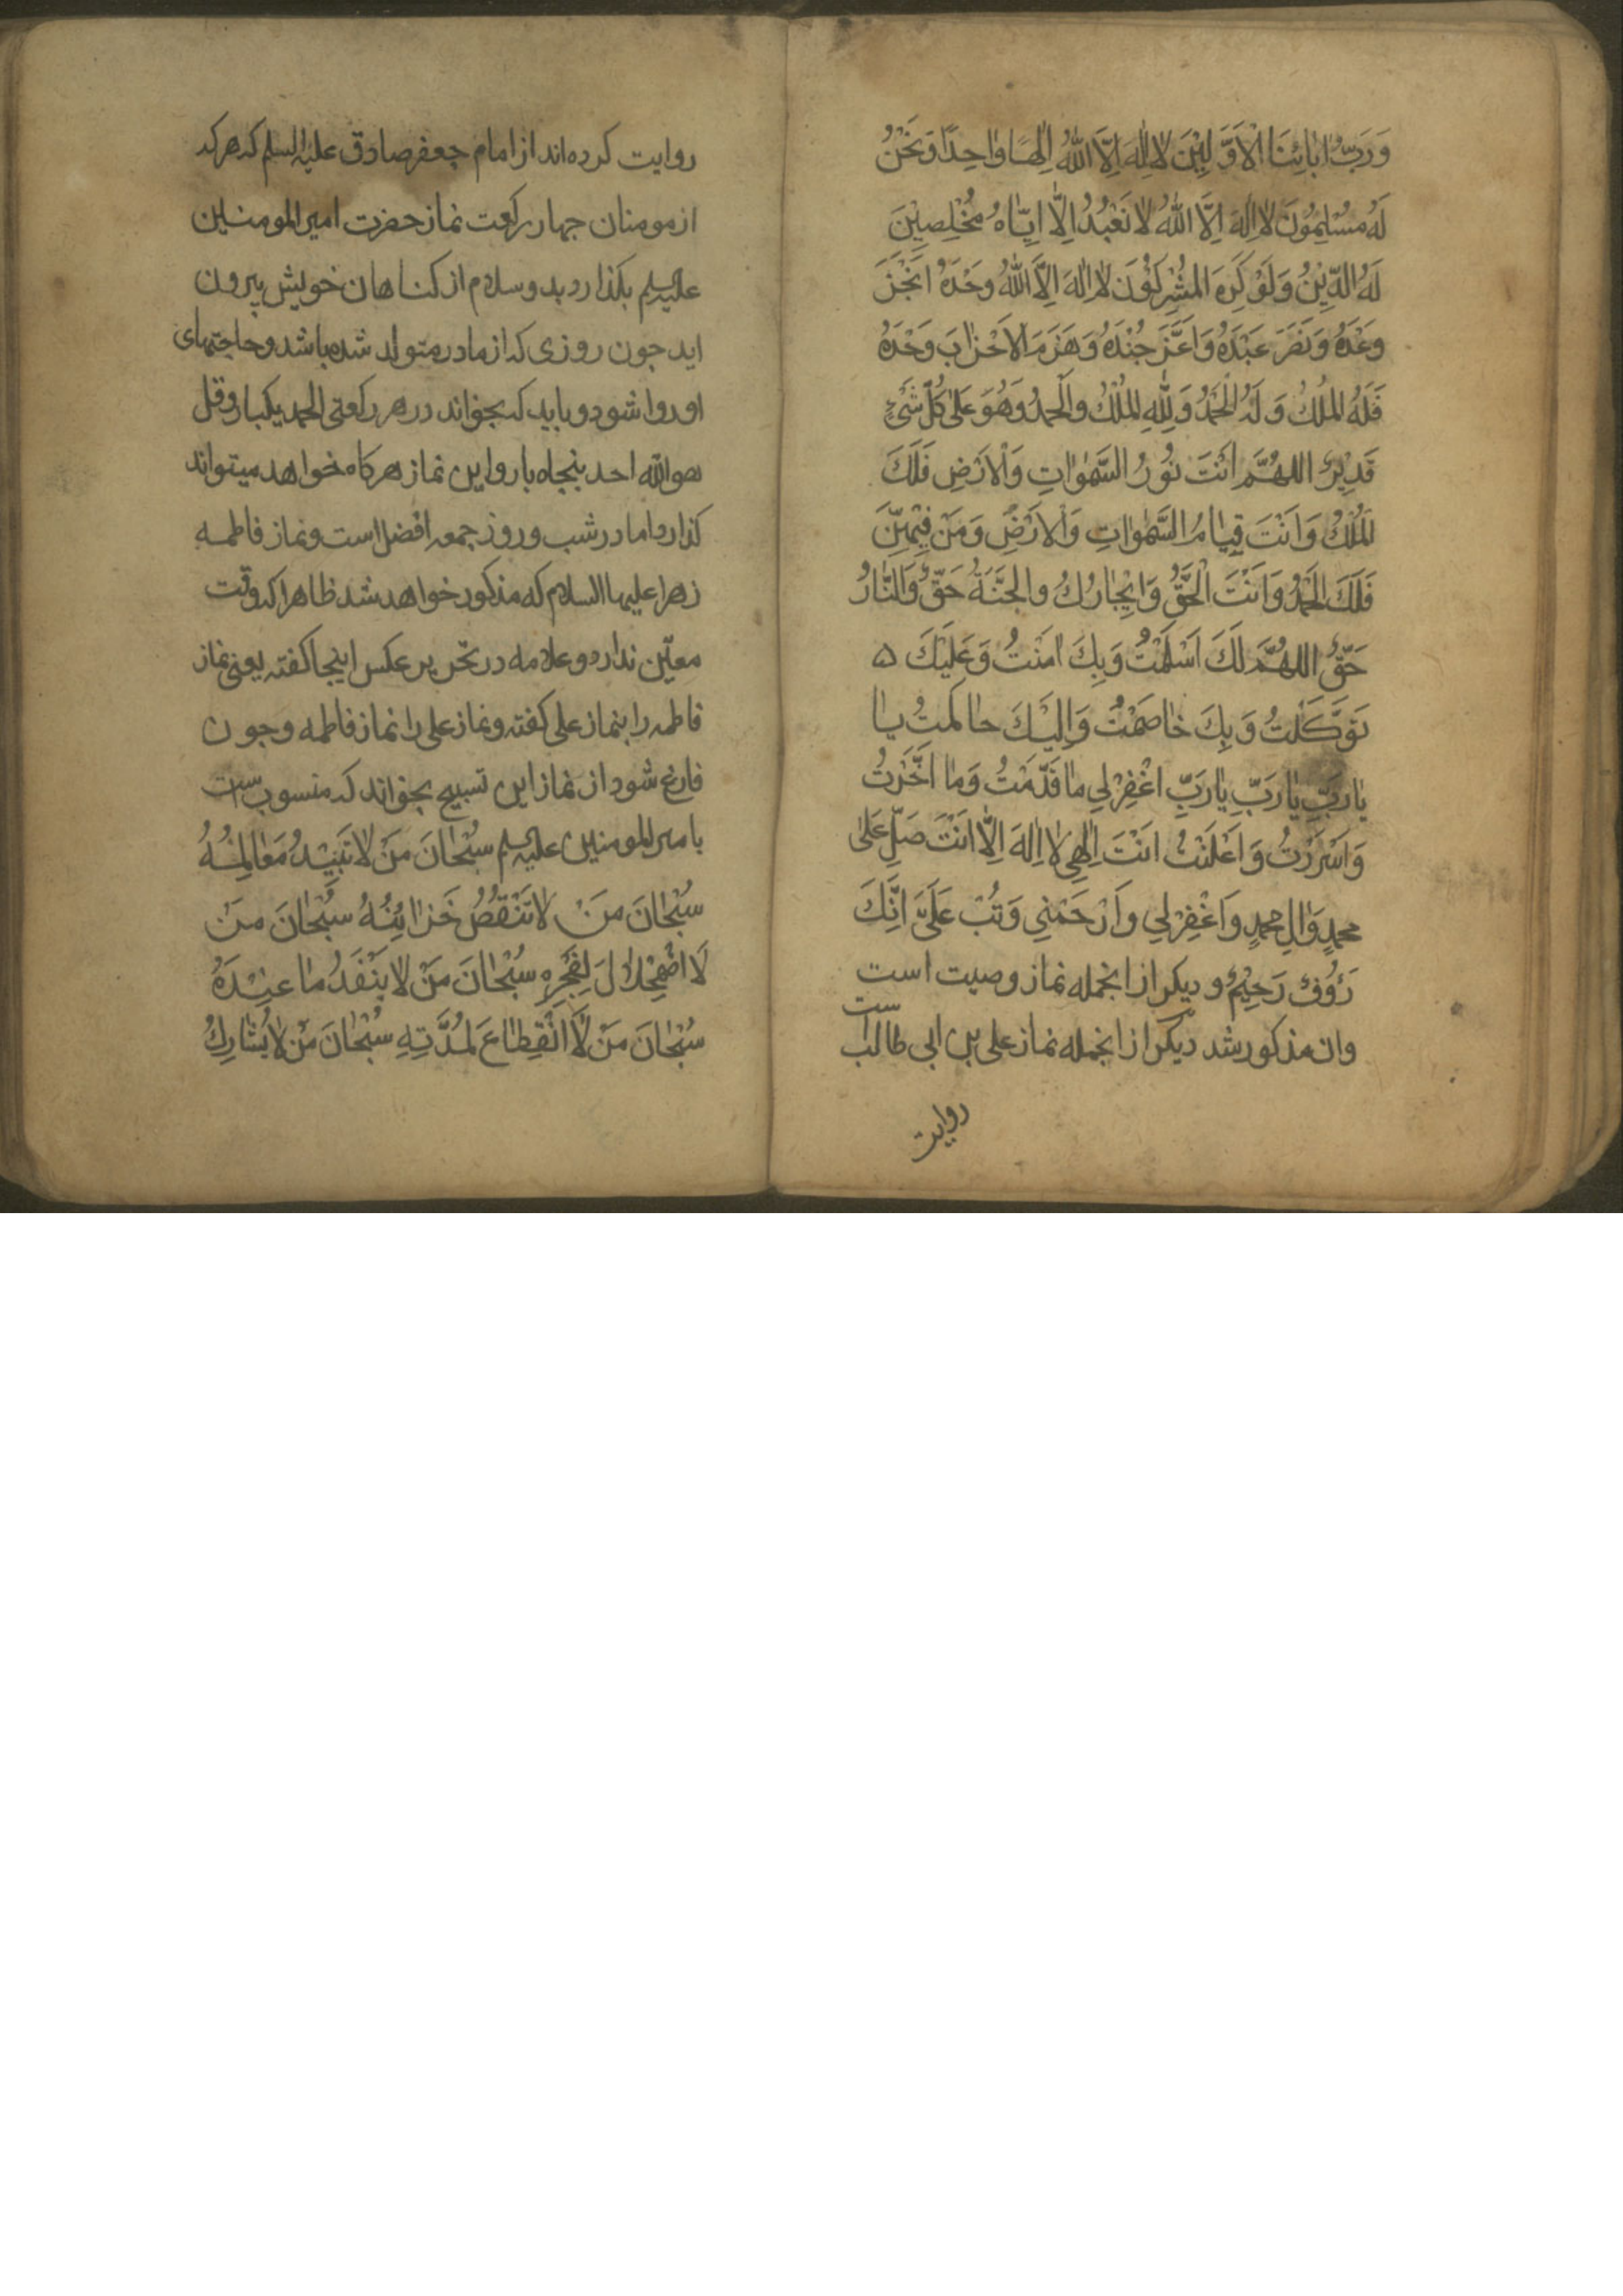 وَرَبُّ اٰبَائِنَا الْاَوَّلِيْنَ لَا اِلٰهَ اِلَّا اللّٰهُ اِلٰهًا وٰاحِدًا وَنَحْنُ
لَهُ مُسْلِمُوْنَ لَا اِلٰهَ اِلَّا اللّٰهُ لَا نَعْبُدُ اِلَّا اِيَّاهُ مُخْلِصِيْنَ
لَهُ الدِّيْنُ وَلَوْ كَرِهَ الْمُشْرِكُوْنَ لَا اِلٰهَ اِلَّا اللّٰهُ وَحْدَهُ اَنْجَزَ
وَعْدَهُ وَنَصَرَ عَبْدَهُ وَاَعَزَّ جُنْدَهُ وَهَزَمَ الْاَحْزٰابَ وَحْدَهُ
فَلَهُ الْمُلْكُ وَلَهُ الْحَمْدُ وَلِلّٰهِ الْمُلْكُ وَالْحَمْدُ وَهُوَ عَلٰى كُلِّ شَيْءٍ
قَدِيْرٌ اللهُمَّ اَنْتَ نُوْرُ السَّمٰوٰاتِ وَالْاَرْضِ فَلَكَ
الْمُلْكُ وَاَنْتَ قِيٰامُ السَّمٰوٰاتِ وَالْاَرْضِ وَمَنْ فِيْهِنَّ
فَلَكَ الْحَمْدُ وَاَنْتَ الْحَقُّ وَاِنْجٰازُكَ والْجَنَّةُ حَقٌّ وَالنّٰارُ
حَقٌّ اللهُمَّ لَكَ اَسْلَمْتُ وَبِكَ اٰمَنْتُ وَعَلَيْكَ ه
تَوَكَّلْتُ وَبِكَ خٰاصَمْتُ وَاِلَيْكَ حٰاكَمْتُ يٰا
يٰارَبِّ يٰارَبِّ يٰارَبِّ اغْفِرْ لِي مٰا قَدَّمْتُ وَمٰا اَخَّرْتُ
وَاَسْرَرْتُ وَاَعْلَنْتُ اَنْتَ اِلٰهِي لٰا اِلٰهَ اِلّٰا اَنْتَ صَلِّ عَلٰى
محمدٍ وَالِ محمدٍ وَاغْفِرْ لِي وَارْحَمْنِي وَتُبْ عَلَيَّ اِنَّكَ
رَؤُفٌ رَحِيْمٌ و ديكر ازانجمله نماز وصيت است
وان مذكور شد ديكر ازانجمله نماز على بن ابى طالب است
روايت
روايت كرده‌اند از امام جعفر صادق عليه السلم كه هر كه
از مومنان جهار ركعت نماز حضرت امير المومنين
عليه السلم بكذارد بدو سلام از كناهان خويش بيرون
ايد جون روزى كه از مادر متولد شده باشد و حاجتهاى
او روا شود و بايد كه بخواند در هر ركعتى الحمد يكبار و قل
هو الله احد پنجاه بار و اين نماز هر كاه خواهد ميتواند
كذارد اما در شب و روز جمعه افضل است و نماز فاطمه
زهرا عليها السلام كه مذكور خواهد شد ظاهرا كه وقت
معيّن ندارد و علامه در تحرير عكس اينجا كفته يعنى نماز
فاطمه را بنماز على كفته و نماز على را نماز فاطمه و جون
فارغ شود از نماز اين تسبيح بخواند كه منسوب است
بامير المومنين عليه السلم سُبْحٰانَ مَنْ لٰا تَبِيْدُ مَعٰالِمُهُ
سُبْحٰانَ مَنْ لٰا تَنْقُصُ خَزٰائِنُهُ سُبْحٰانَ مَنْ
لَا اضْمِحْلٰالَ لِفَخْرِهِ سُبْحٰانَ مَنْ لٰا يَنْفَدُ مٰا عِنْدَهُ
سُبْحٰانَ مَنْ لَا انْقِطٰاعَ لِمُدَّتِهِ سُبْحٰانَ مَنْ لٰا يُشٰارِكُ